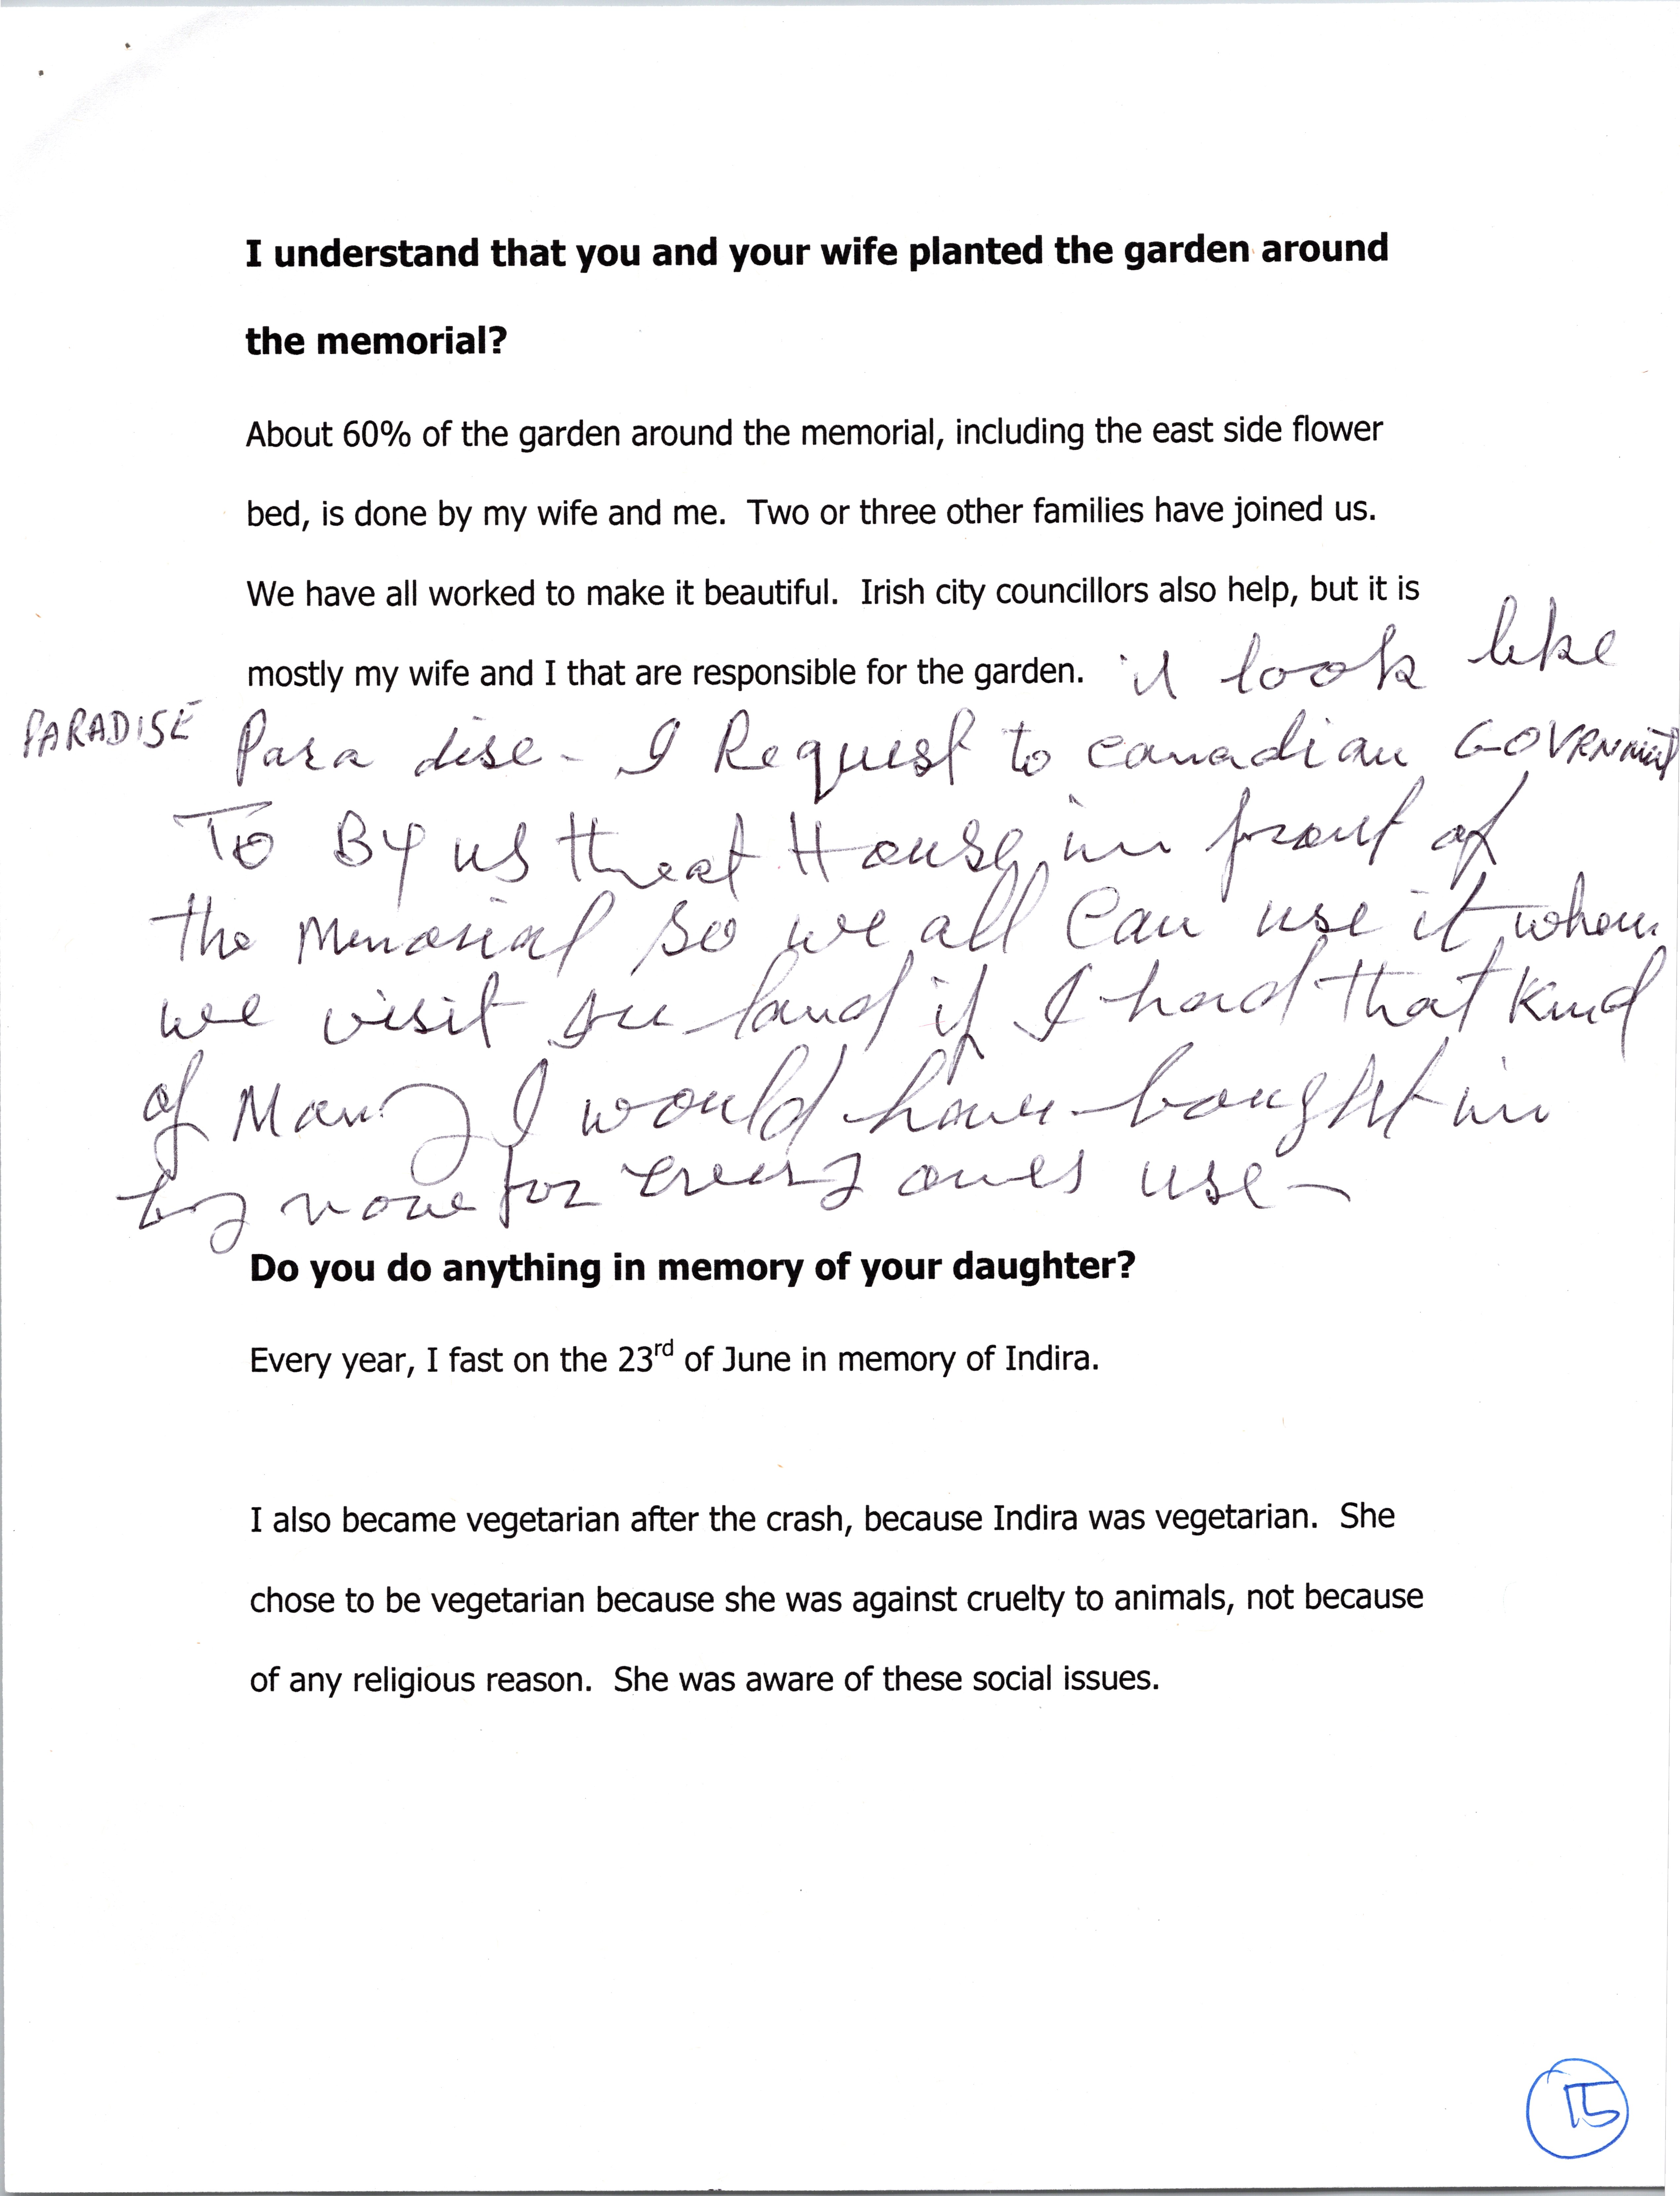 I understand that you and your wife planted the garden around
the memorial?
About 60% of the garden around the memorial, including the east side flower
bed, is done by my wife and me.  Two or three other families have joined us.
We have all worked to make it beautiful.  Irish city councillors also help, but it is
mostly my wife and I that are responsible for the garden. it look like
PARADISE Para dise - I Request to canadian GOVRNMENT
To By us that House in front of
the Memorial so we all Can use it when
we visit land if I had that Kind
of Many I would have bought in
by now for every ones use -
Do you do anything in memory of your daughter?
Every year, I fast on the 23rd of June in memory of Indira.
I also became vegetarian after the crash, because Indira was vegetarian.  She
chose to be vegetarian because she was against cruelty to animals, not because
of any religious reason.  She was aware of these social issues.
15